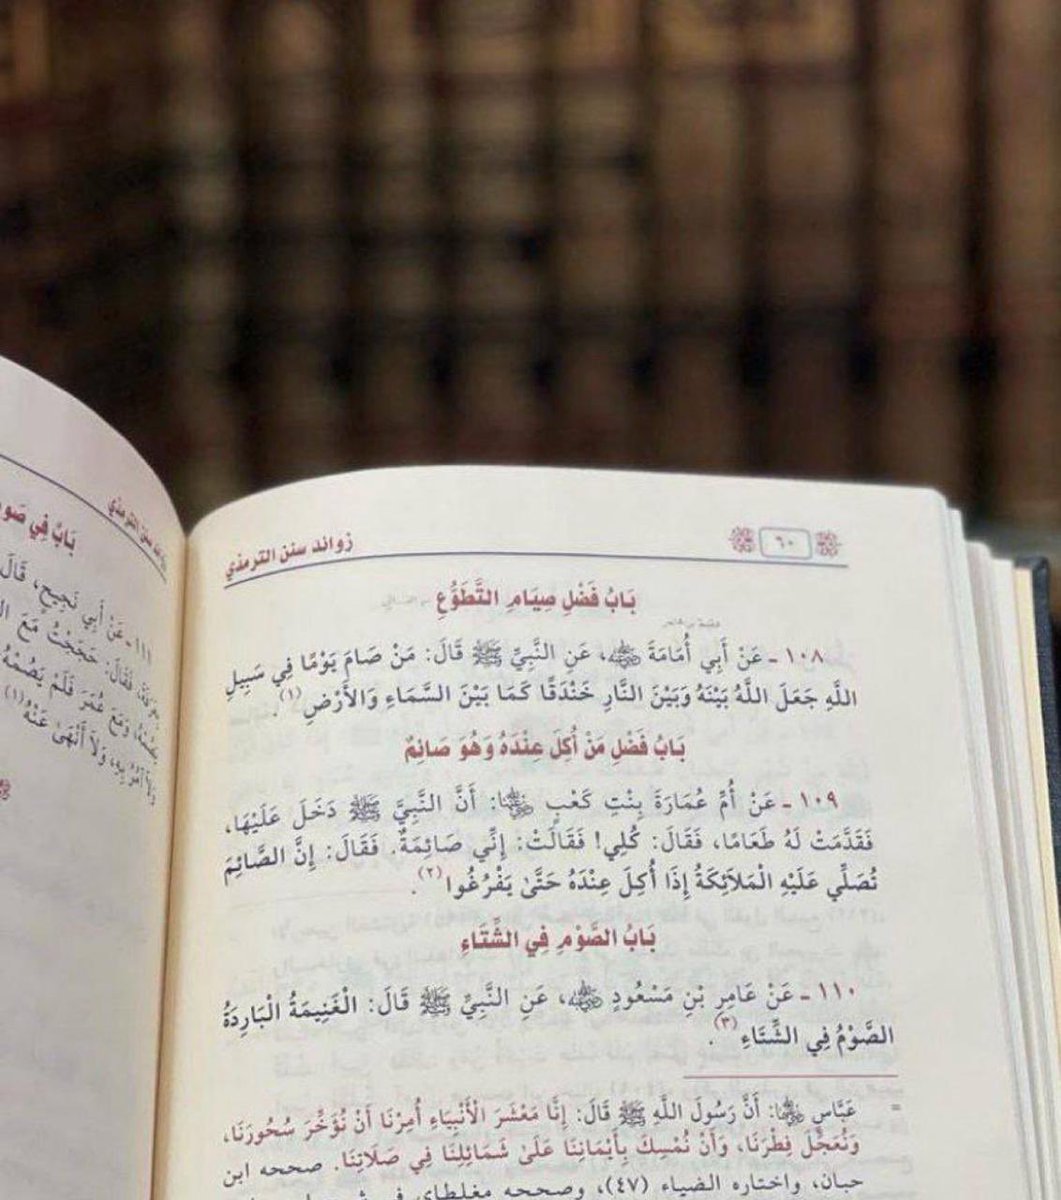 ٦٠ زوائد سنن الترمذي
بَابُ فَضْلِ صِيَامِ التَّطَوُّعِ
١٠٨ - عَنْ أَبِي أُمَامَةَ رضي الله عنه، عَنِ النَّبِيِّ ﷺ قَالَ: مَنْ صَامَ يَوْمًا فِي سَبِيلِ
اللَّهِ جَعَلَ اللَّهُ بَيْنَهُ وَبَيْنَ النَّارِ خَنْدَقًا كَمَا بَيْنَ السَّمَاءِ وَالأَرْضِ (١).
بَابُ فَضْلِ مَنْ أُكِلَ عِنْدَهُ وَهُوَ صَائِمٌ
١٠٩ - عَنْ أُمِّ عُمَارَةَ بِنْتِ كَعْبٍ رضي الله عنها: أَنَّ النَّبِيَّ ﷺ دَخَلَ عَلَيْهَا،
فَقَدَّمَتْ لَهُ طَعَامًا، فَقَالَ: كُلِي! فَقَالَتْ: إِنِّي صَائِمَةٌ. فَقَالَ: إِنَّ الصَّائِمَ
تُصَلِّي عَلَيْهِ الْمَلَائِكَةُ إِذَا أُكِلَ عِنْدَهُ حَتَّىٰ يَفْرُغُوا (٢).
بَابُ الصَّوْمِ فِي الشِّتَاءِ
١١٠ - عَنْ عَامِرِ بْنِ مَسْعُودٍ رضي الله عنه، عَنِ النَّبِيِّ ﷺ قَالَ: الْغَنِيمَةُ الْبَارِدَةُ
الصَّوْمُ فِي الشِّتَاءِ (٣).
= عَبَّاسٍ رضي الله عنهما: أَنَّ رَسُولَ اللَّهِ ﷺ قَالَ: إِنَّا مَعْشَرَ الْأَنْبِيَاءِ أُمِرْنَا أَنْ نُؤَخِّرَ سُحُورَنَا،
وَنُعَجِّلَ فِطْرَنَا، وَأَنْ نُمْسِكَ بِأَيْمَانِنَا عَلَىٰ شَمَائِلِنَا فِي صَلَاتِنَا. صححه ابن
حبان، واختاره الضياء (٤٧)، وصححه مغلطاي في
سنن الترمذي
بَابٌ فِي
١١١ - عَنْ أَبِي نَجِيحٍ، قَالَ
فَقَالَ: حَجَجْتُ مَعَ
وَمَعَ عُمَرَ فَلَمْ يَصُمْهُ
وَلَا آمُرُ بِهِ، وَلَا أَنْهَىٰ عَنْهُ (١)